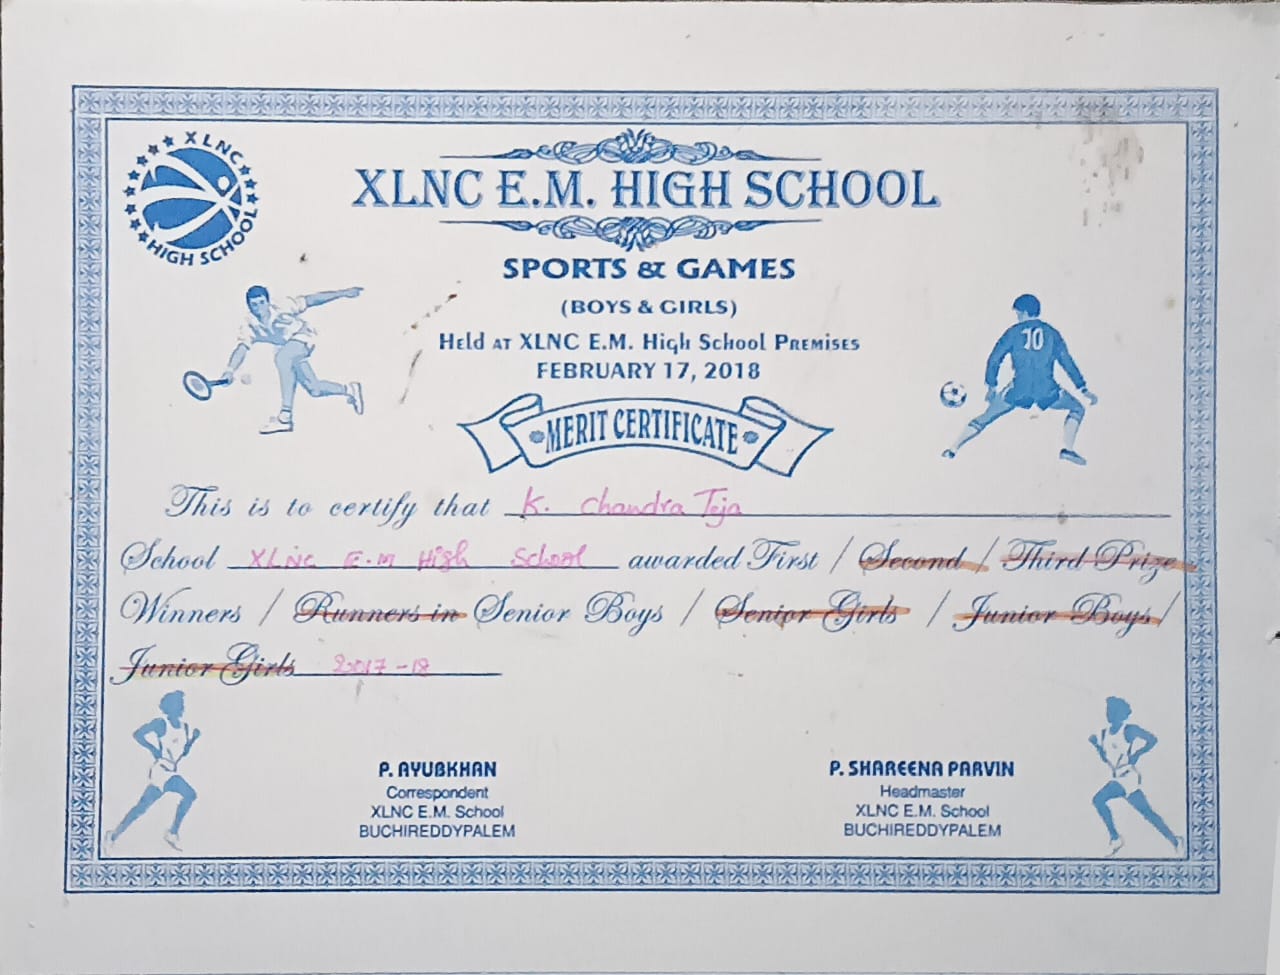 XLNC
HIGH SCHOOL
XLNC E.M. HIGH SCHOOL
SPORTS & GAMES
(BOYS & GIRLS)
Held AT XLNC E.M. High School PREMISES
FEBRUARY 17, 2018
10
MERIT CERTIFICATE
This is to certify that K. Chandra Teja
School XLNC E.M High School awarded First / Second / Third Prize
Winners / Runners in Senior Boys / Senior Girls / Junior Boys /
Junior Girls 2017-18
P. AYUBKHAN
Correspondent
XLNC E.M. School
BUCHIREDDYPALEM
P. SHAREENA PARVIN
Headmaster
XLNC E.M. School
BUCHIREDDYPALEM